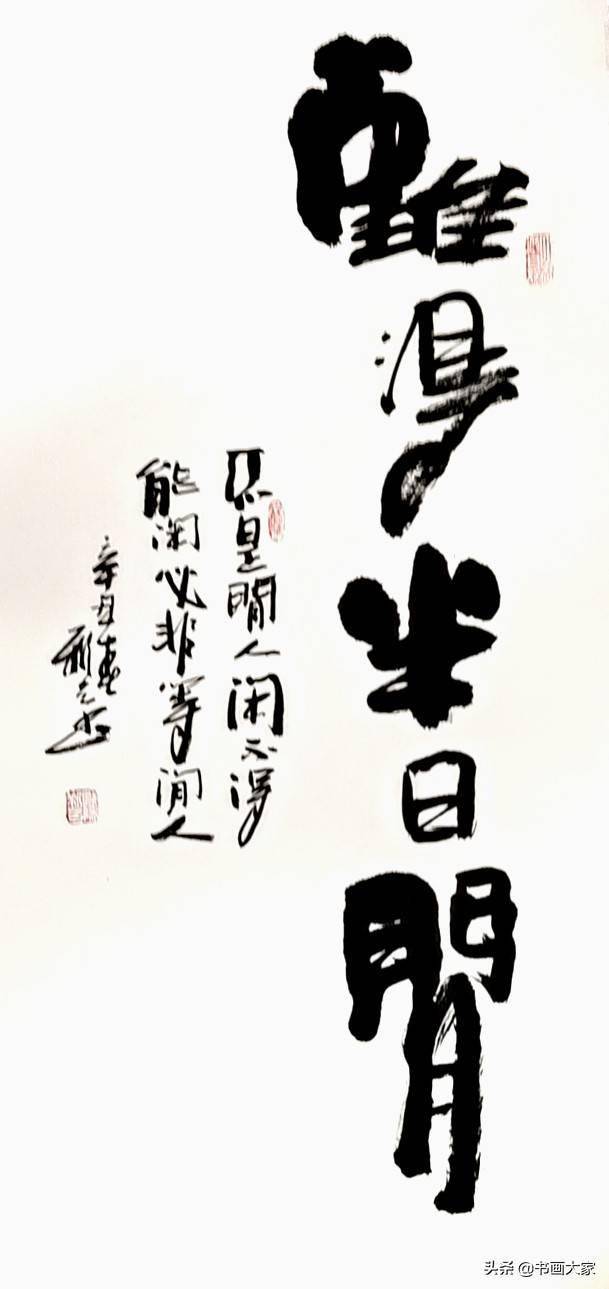 難得半日閒
不是閒人闲不得
能闲必非等闲人
辛丑春
头条 @书画大家